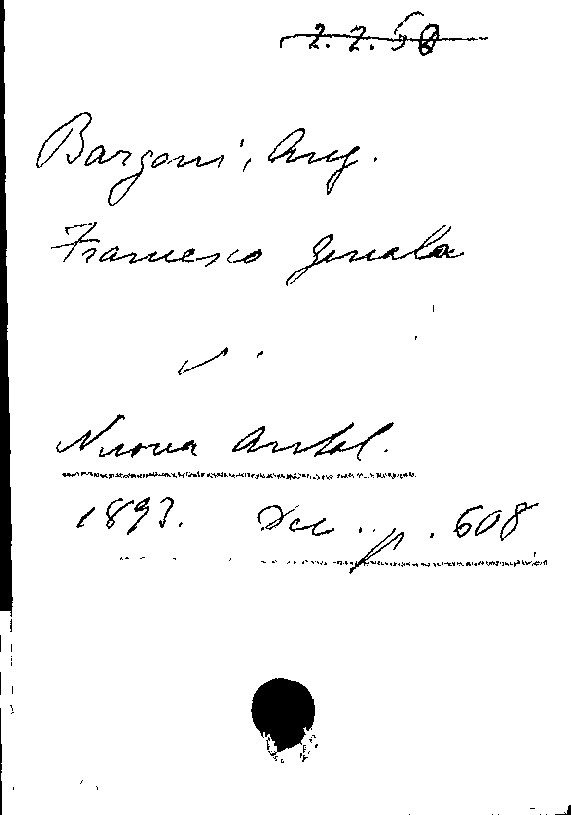 2.2.58
Bargoni, Aug.
Francesco Genala
Nuova Antol.
1893. Dec. p. 608